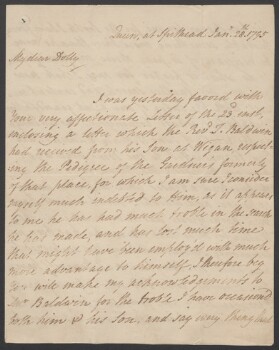 Queen, at Spithead Jan. 26th. 1795
My dear Dolly
I was yesterday favor'd with
Your very affectionate Letter of the 23d. inst.
inclosing a letter which the Revd. T. Baldwin
had receiv'd from his Son at Wigan, respect-
-ing the Pedigree of the Gardiners formerly
of that place, for which I am sure I consider
myself much indebted to them, as it appears
to me he has had much troble in the search
he has made, and has lost much time
that might have been employ'd with much
more advantage to himself, I therefore beg
you will make my acknowledgements to
Mr. Baldwin for the troble I have occasioned
both him & his Son, and say every thing